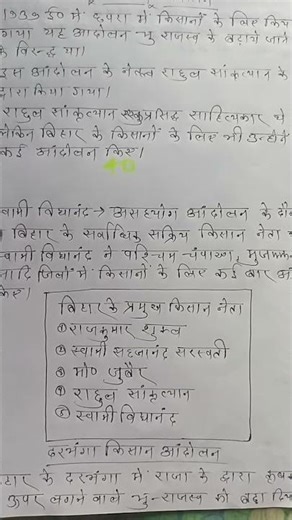 1939 ई० में छपरा में किसानों के लिए किया
गया यह आंदोलन भू राजस्व के बढ़ाये जाने
के विरुद्ध था।
इस आंदोलन के नेतृत्व राहुल सांकृत्यान के
द्वारा किया गया।
राहुल सांकृत्यान सुप्रसिद्ध साहित्यकार थे
लेकिन बिहार के किसानों के लिए भी उन्होंने
कई आंदोलन किए।
स्वामी विद्यानंद → असहयोग आंदोलन के दौ
बिहार के सर्वाधिक सक्रिय किसान नेता
स्वामी विद्यानंद ने पश्चिम चंपारण,
आदि जिलों में किसानों के लिए कई बार
किए।
बिहार के प्रमुख किसान नेता
① राजकुमार शुक्ल
② स्वामी सहजानंद सरस्वती
③ मो० जुबैर
④ राहुल सांकृत्यान
⑤ स्वामी विद्यानंद
दरभंगा किसान आंदोलन
के दरभंगा में राजा के द्वारा
ऊपर लगने वाले भू-राजस्व को बढ़ा दिया